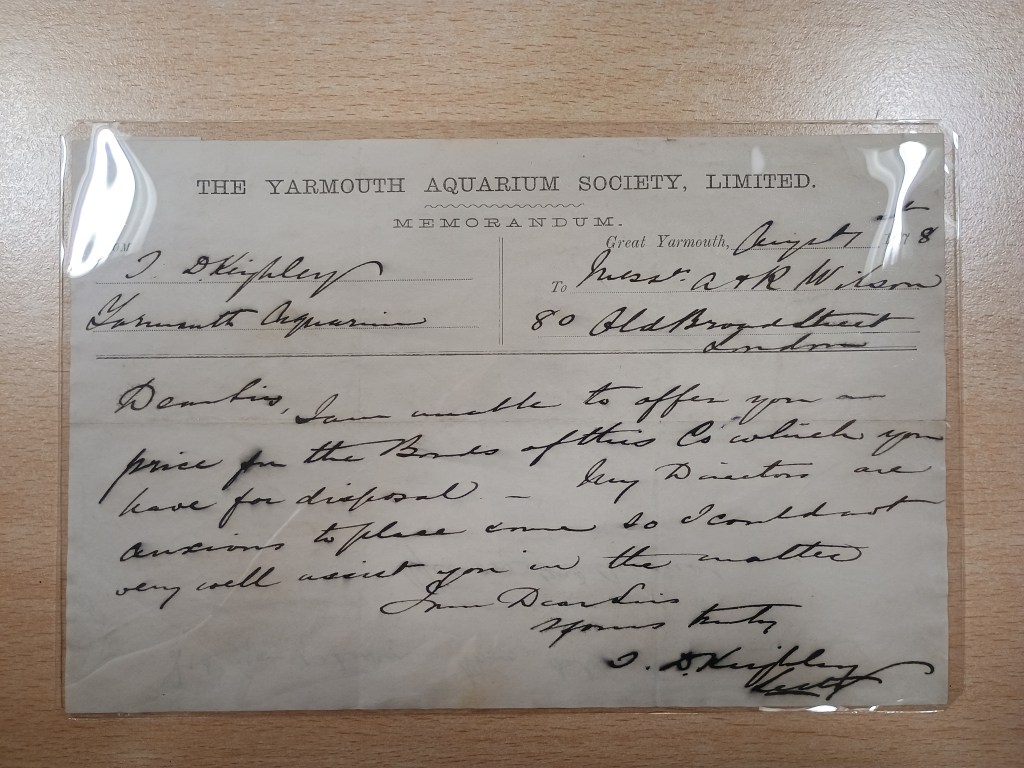 THE YARMOUTH AQUARIUM SOCIETY, LIMITED.
MEMORANDUM.
Great Yarmouth, August 1878
T. D Keighley
To Messrs. A & R Wilson
Yarmouth Aquarium
80 Old Broad Street
London
Dear Sirs,
I am unable to offer you a
price for the Bonds of this Co which you
have for disposal – My Directors are
anxious to place some so I could not
very well assist you in the matter
I am Dear Sirs
Yours truly
T. D. Keighley
Secty